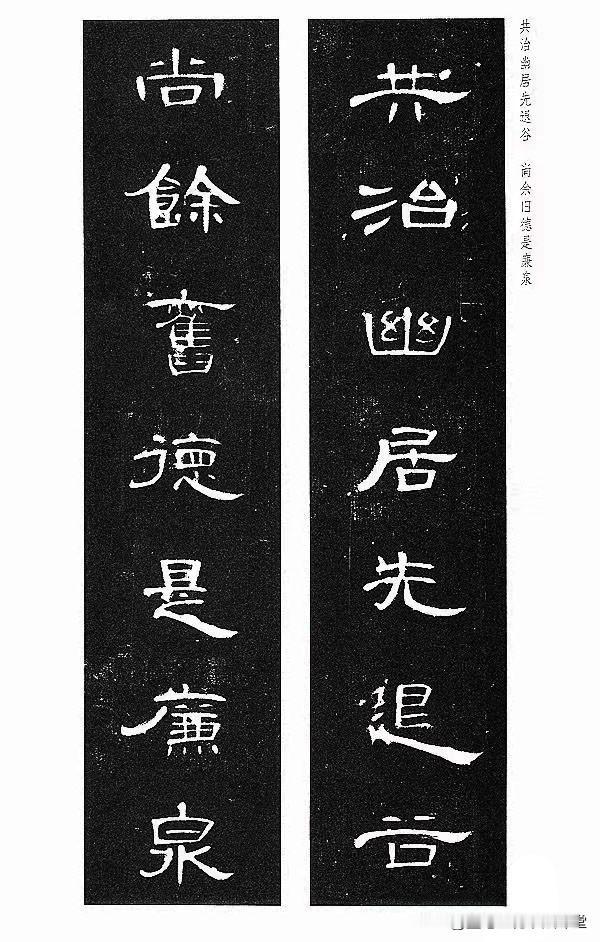 共治幽居先退谷 尚余旧德是廉泉
共治幽居先退谷
尚餘舊德是廉泉